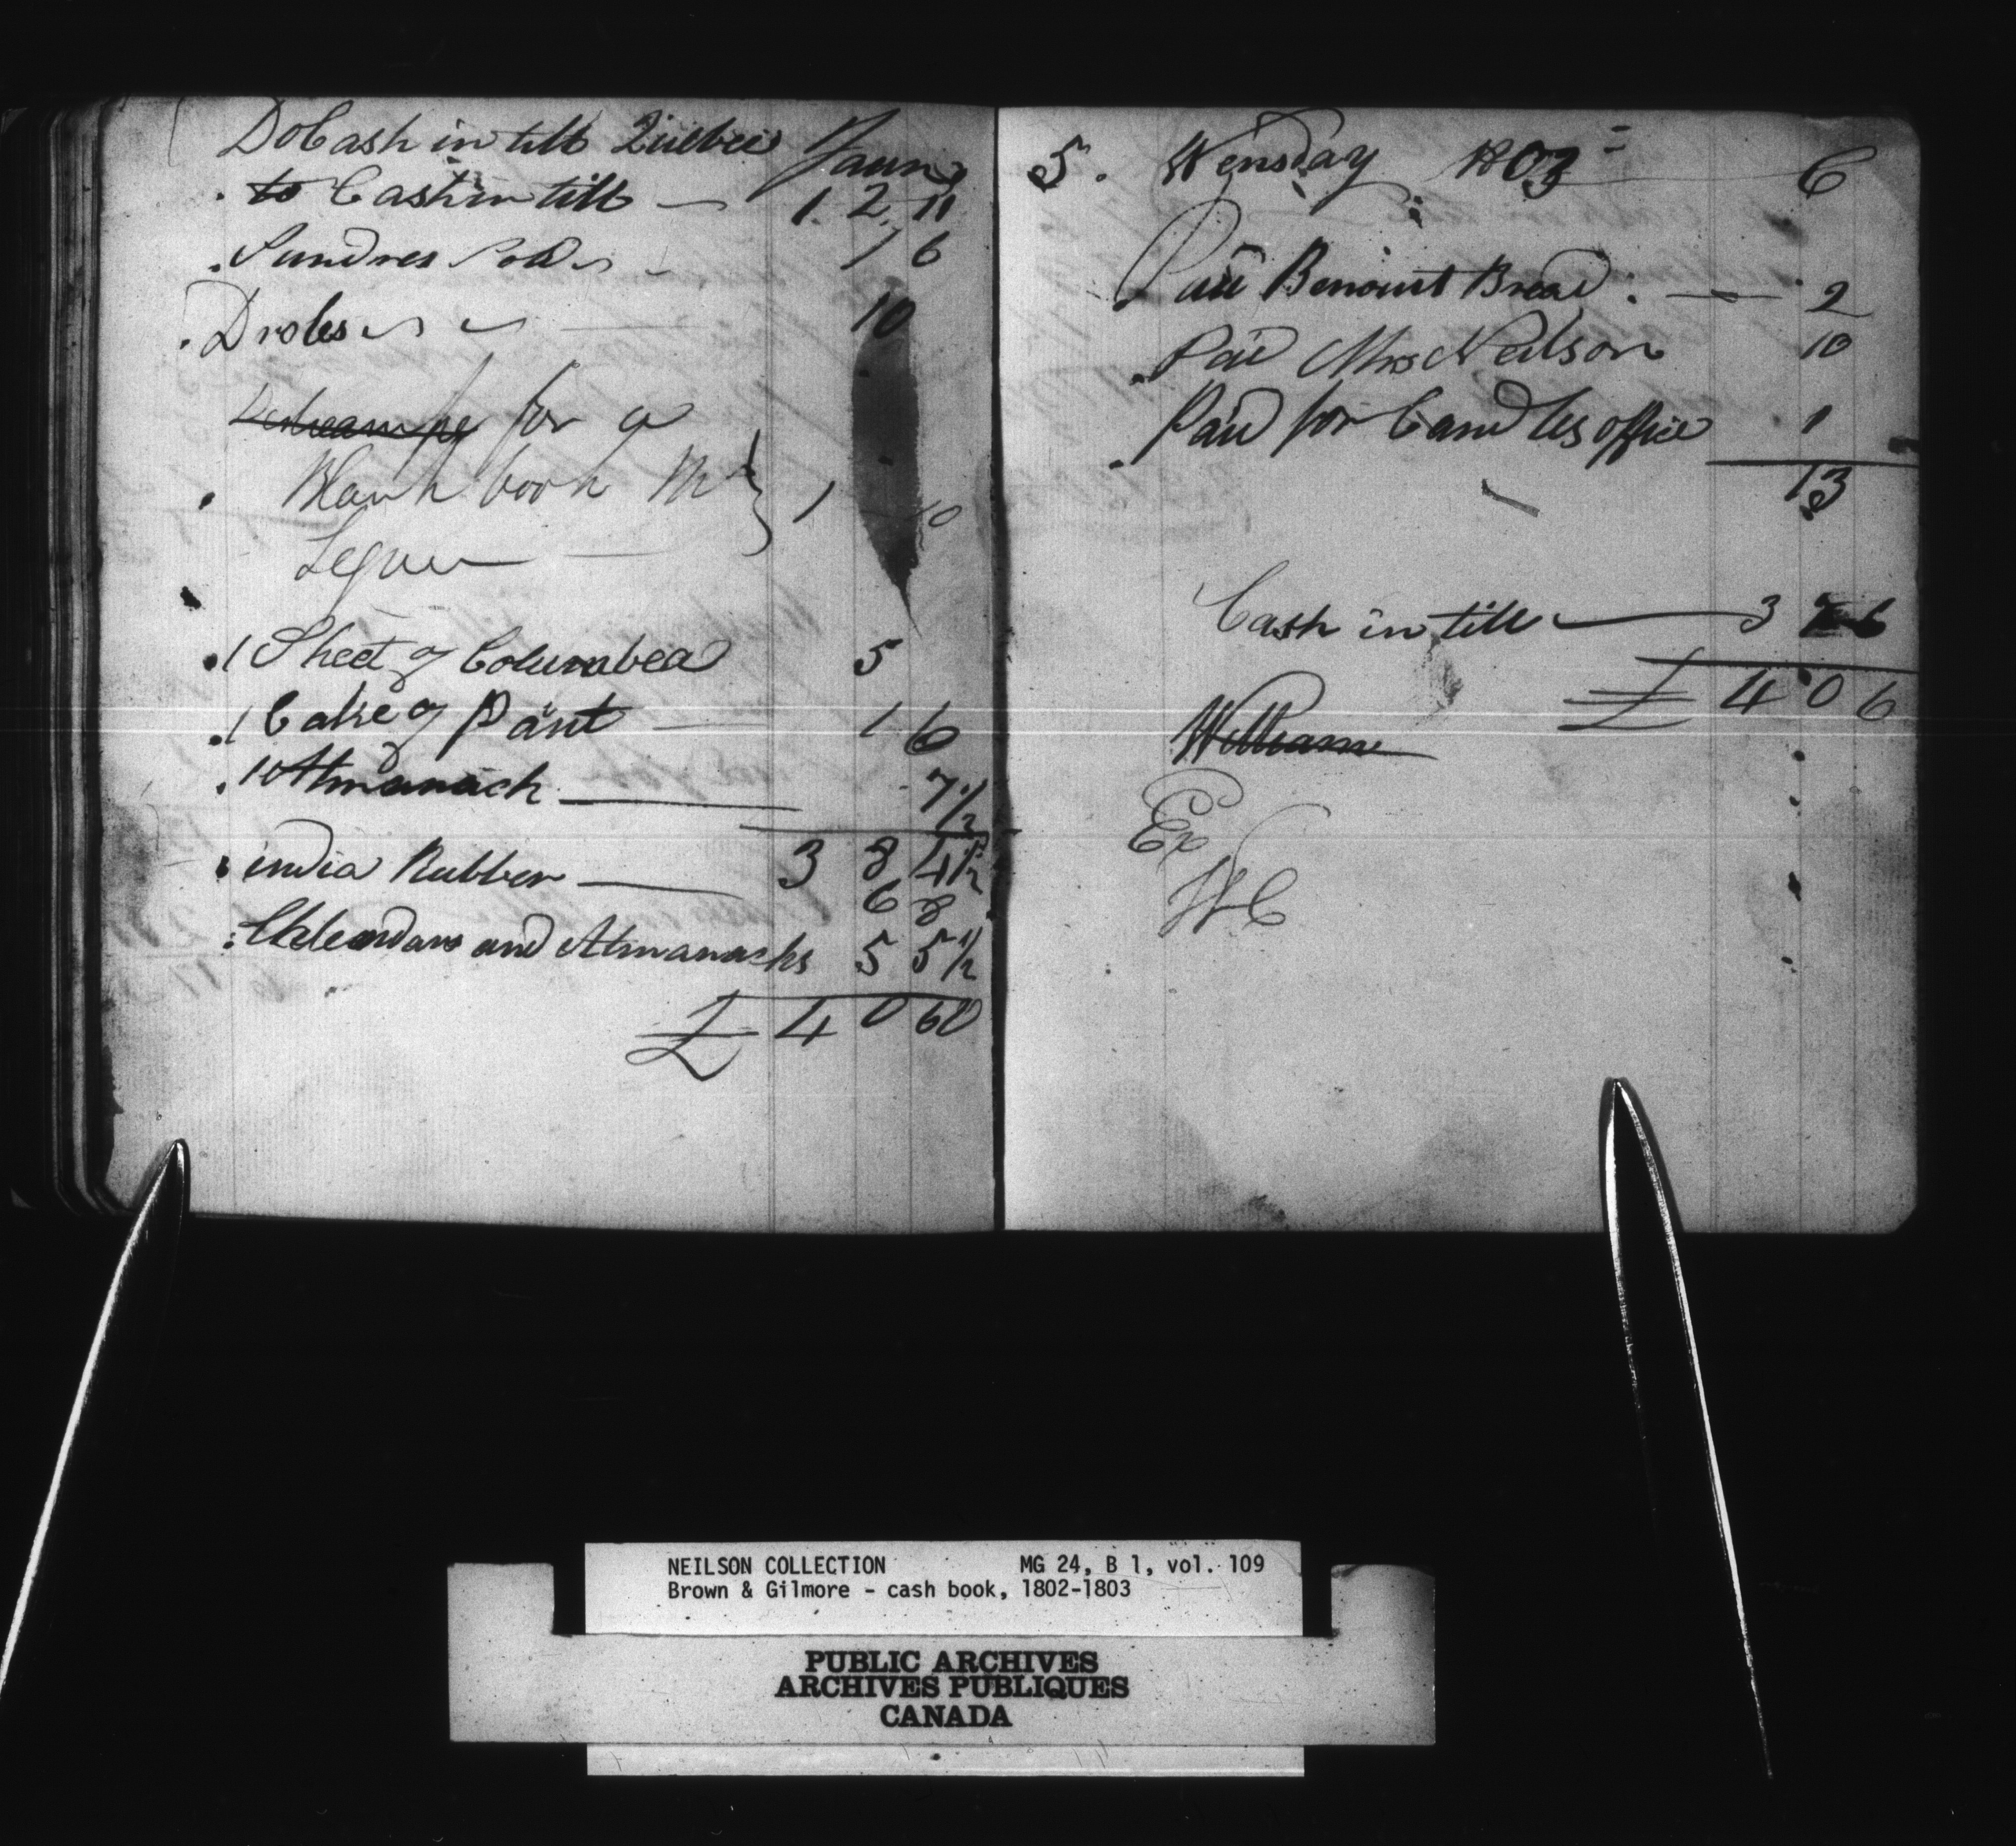 Do Cash in till Quebec Jauny
to Cash in till — 1. 2. 11
Sundres Sold — 1 6
Drobes — 10
for a
Blank book Mr 1 10
Leguu —
1 Sheet of Columbea 5
1 Cake of Pänt — 1 6
1 Almanack — 7 1/2
3 8 4 1/2
india Rubber — 6 8
Calendars and Almanacks 5 5 1/2
£ 4 0 6
5. Wensday 1803 6
Paid Benoiut Bread. — 2
Paid Mrs Neilson 10
Paid for Candles office 1
13
Cash in till — 3 7 6
£ 4 0 6
William
Ex
WC
NEILSON COLLECTION MG 24, B 1, vol. 109
Brown & Gilmore - cash book, 1802-1803
PUBLIC ARCHIVES
ARCHIVES PUBLIQUES
CANADA